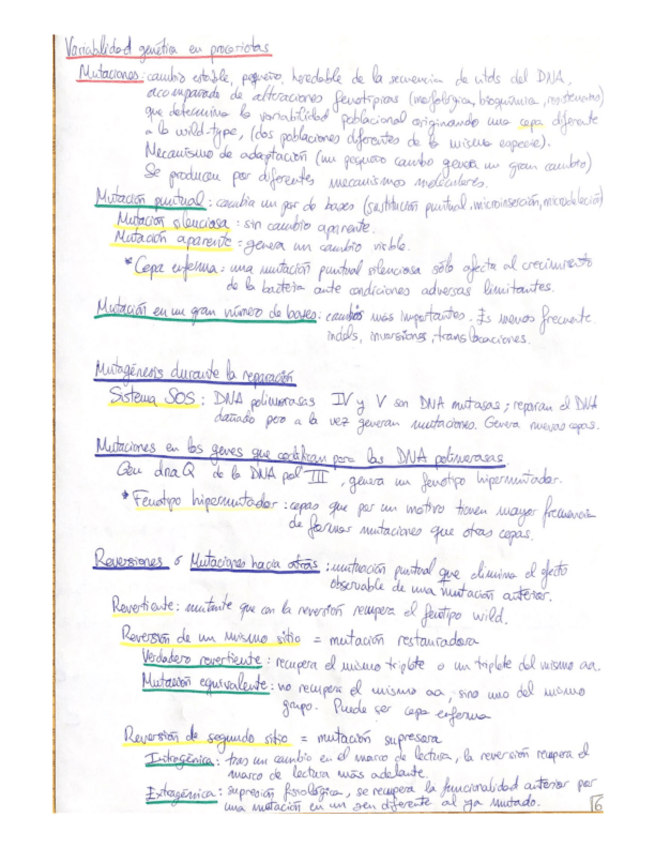 Variabilidad genética en procariotas
Mutaciones: cambio estable, pequeño, heredable de la secuencia de ntds del DNA,
acompañada de alteraciones fenotípicas (morfológica, bioquímica, resistencias)
que determina la variabilidad poblacional originando una cepa diferente
a la wild-type, (dos poblaciones diferentes de la misma especie).
Mecanismo de adaptación (un pequeño cambio genera un gran cambio)
Se producen por diferentes mecanismos moleculares.
Mutación puntual: cambia un par de bases (sustitución puntual, microinserción, microdeleción)
Mutación silenciosa: sin cambio aparente.
Mutación aparente: genera un cambio visible.
* Cepa enferma: una mutación puntual silenciosa sólo afecta al crecimiento
de la bacteria ante condiciones adversas limitantes.
Mutación en un gran número de bases: cambios más importantes. Es menos frecuente.
indels, inversiones, translocaciones.
Mutagénesis durante la reparación
Sistema SOS: DNA polimerasas IV y V son DNA mutasas; reparan el DNA
dañado pero a la vez generan mutaciones. Genera nuevas cepas.
Mutaciones en los genes que codifican para las DNA polimerasas.
Gen dnaQ de la DNA pol III, genera un fenotipo hipermutador.
* Fenotipo hipermutador: cepas que por un motivo tienen mayor frecuencia
de formar mutaciones que otras cepas.
Reversiones o Mutaciones hacia atrás: mutación puntual que elimina el efecto
observable de una mutación anterior.
Revertiente: mutante que con la reversión recupera el fenotipo wild.
Reversión de un mismo sitio = mutación restauradora
Verdadero revertiente: recupera el mismo triplete o un triplete del mismo aa.
Mutación equivalente: no recupera el mismo aa, sino uno del mismo
grupo. Puede ser cepa enferma
Reversión de segundo sitio = mutación supresora
Intragénica: tras un cambio en el marco de lectura, la reversión recupera el
marco de lectura más adelante.
Extragénica: supresión fisiológica, se recupera la funcionalidad anterior por
una mutación en un gen diferente al ya mutado.
16